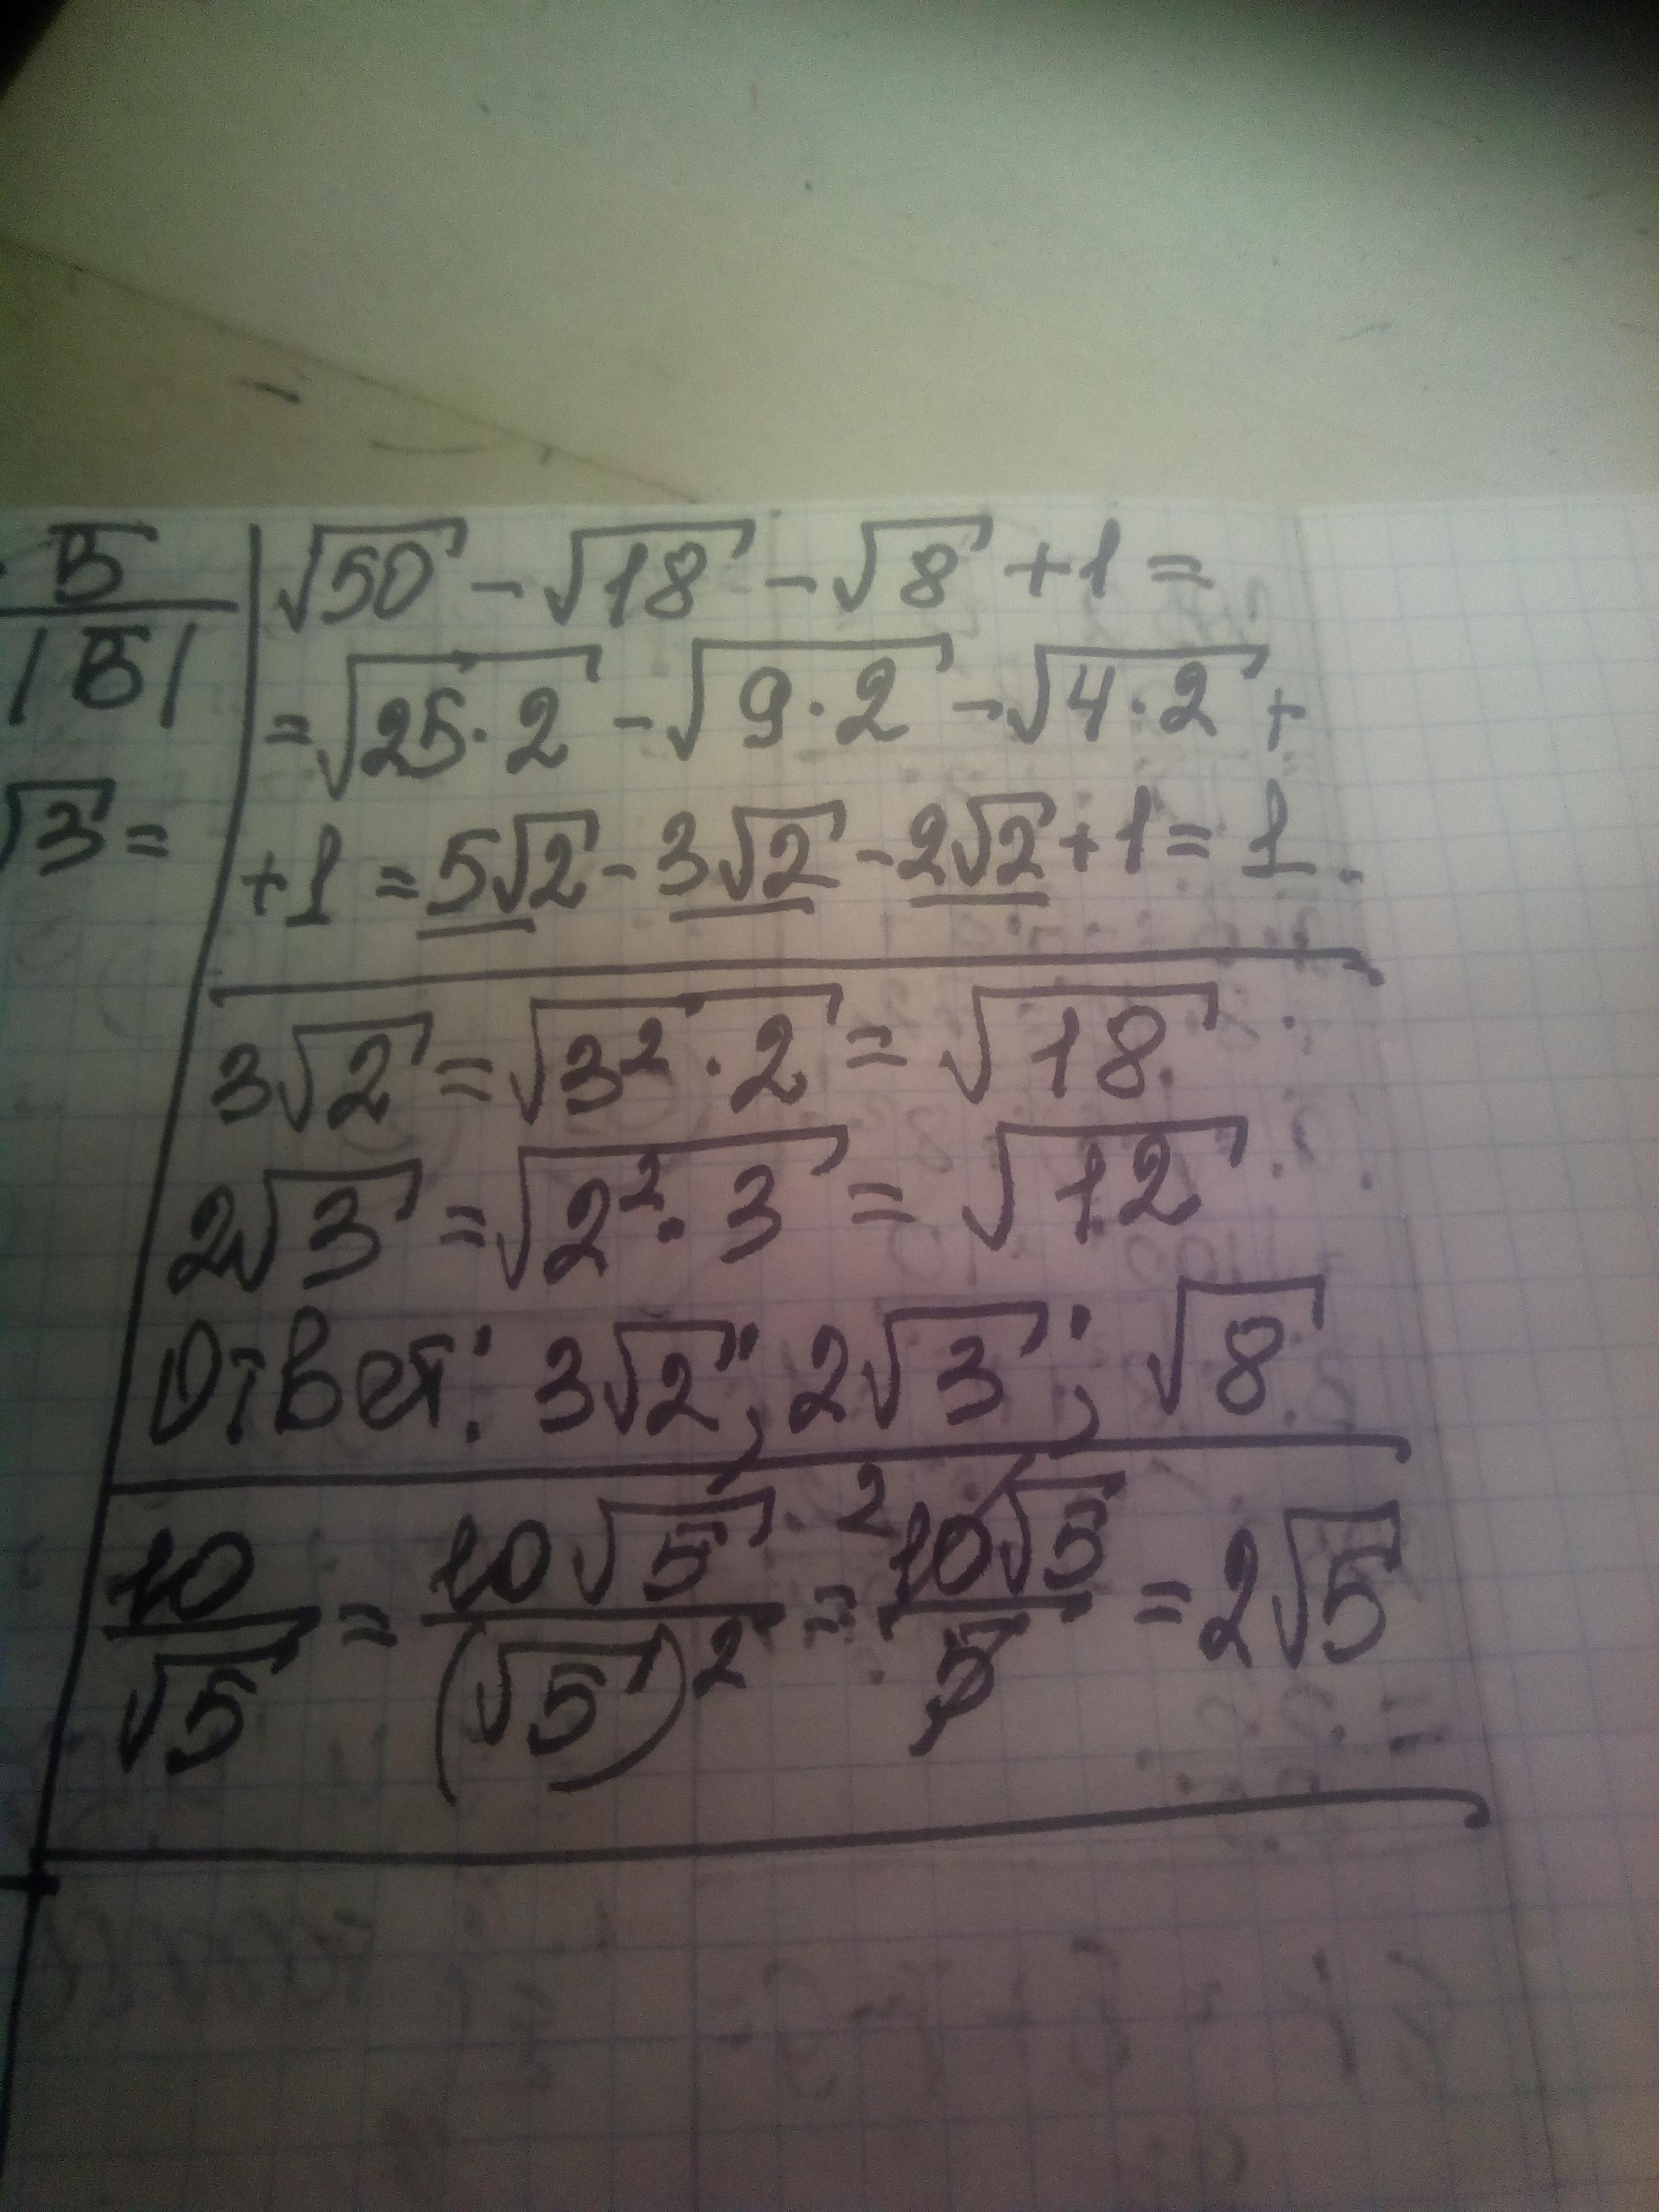 √50 - √18 - √8 + 1 =
= √25·2 - √9·2 - √4·2 +
+ 1 = 5√2 - 3√2 - 2√2 + 1 = 1.
√3 =
3√2 = √3²·2 = √18
2√3 = √2²·3 = √12
Ответ: 3√2; 2√3; √8
10/√5 = 10√5/(√5)² = 10√5/5 = 2√5